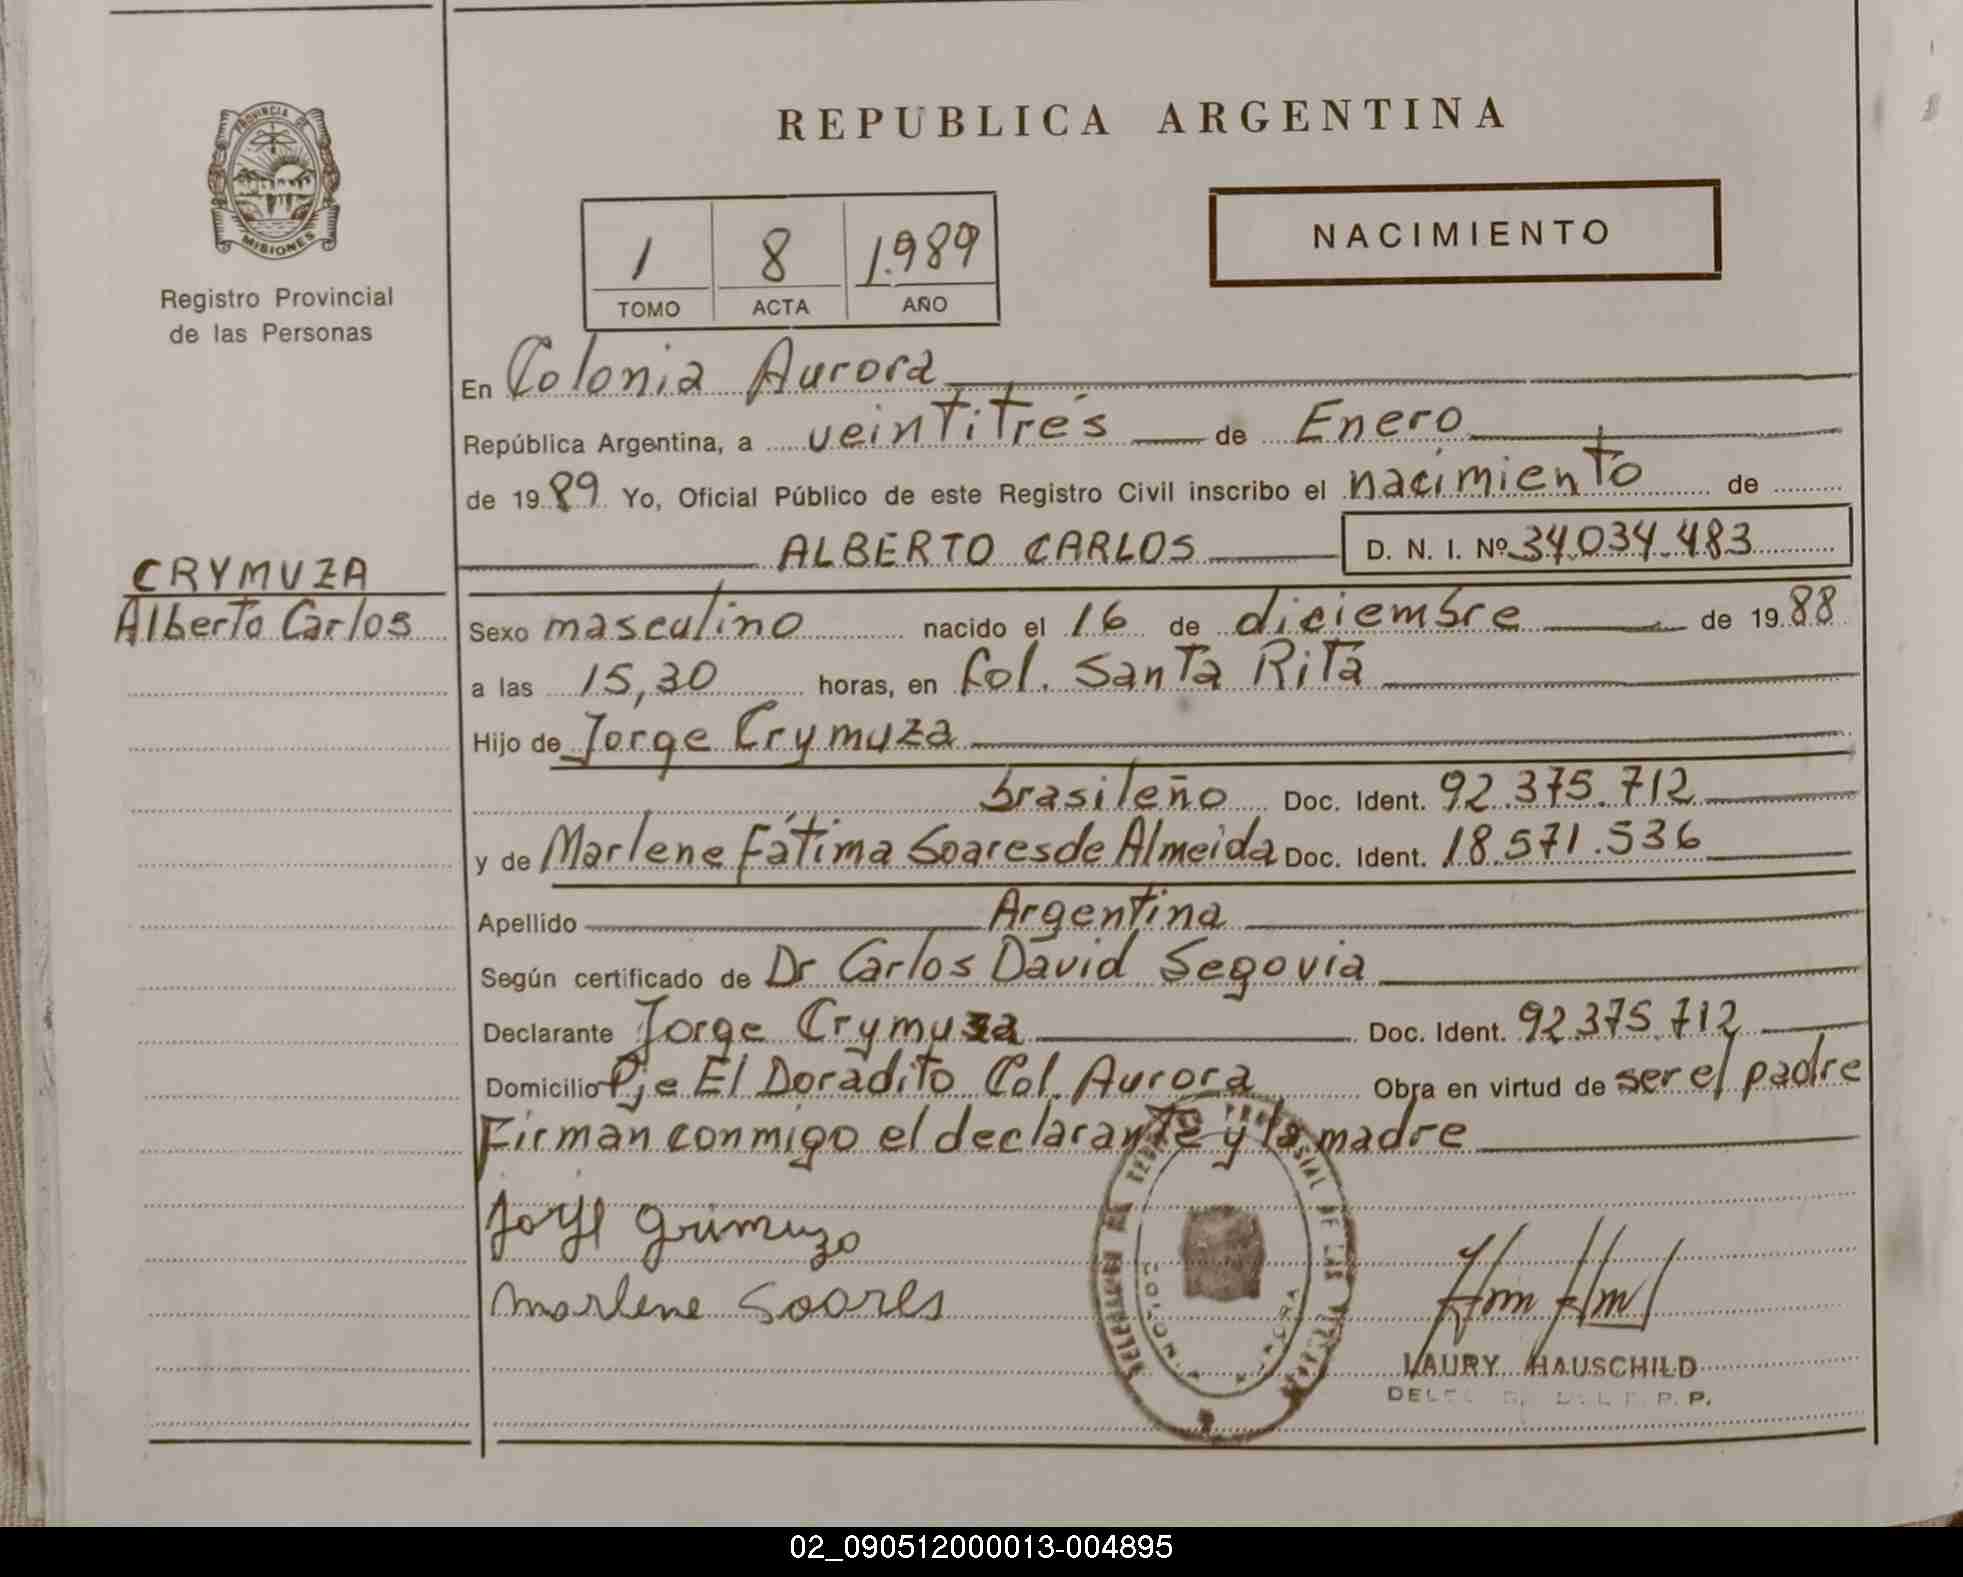 PROVINCIA DE
MISIONES
Registro Provincial
de las Personas
CRYMUZA
Alberto Carlos
REPUBLICA ARGENTINA
1 8 1.989
TOMO ACTA AÑO
NACIMIENTO
En Colonia Aurora
República Argentina, a veintitrés de Enero
de 1989 Yo, Oficial Público de este Registro Civil inscribo el nacimiento de
ALBERTO CARLOS D. N. I. Nº 34.034.483
Sexo masculino nacido el 16 de diciembre de 1988
a las 15,30 horas, en Col. Santa Rita
Hijo de Jorge Crymuza
brasileño Doc. Ident. 92.375.712
y de Marlene Fátima Soares de Almeida Doc. Ident. 18.571.536
Apellido Argentina
Según certificado de Dr Carlos David Segovia
Declarante Jorge Crymuza Doc. Ident. 92.375.712
Domicilio Pje El Doradito Col. Aurora Obra en virtud de ser el padre
Firman conmigo el declarante y la madre
Jorge Grimuza
Marlene Soares
LAURY HAUSCHILD
02_090512000013-004895